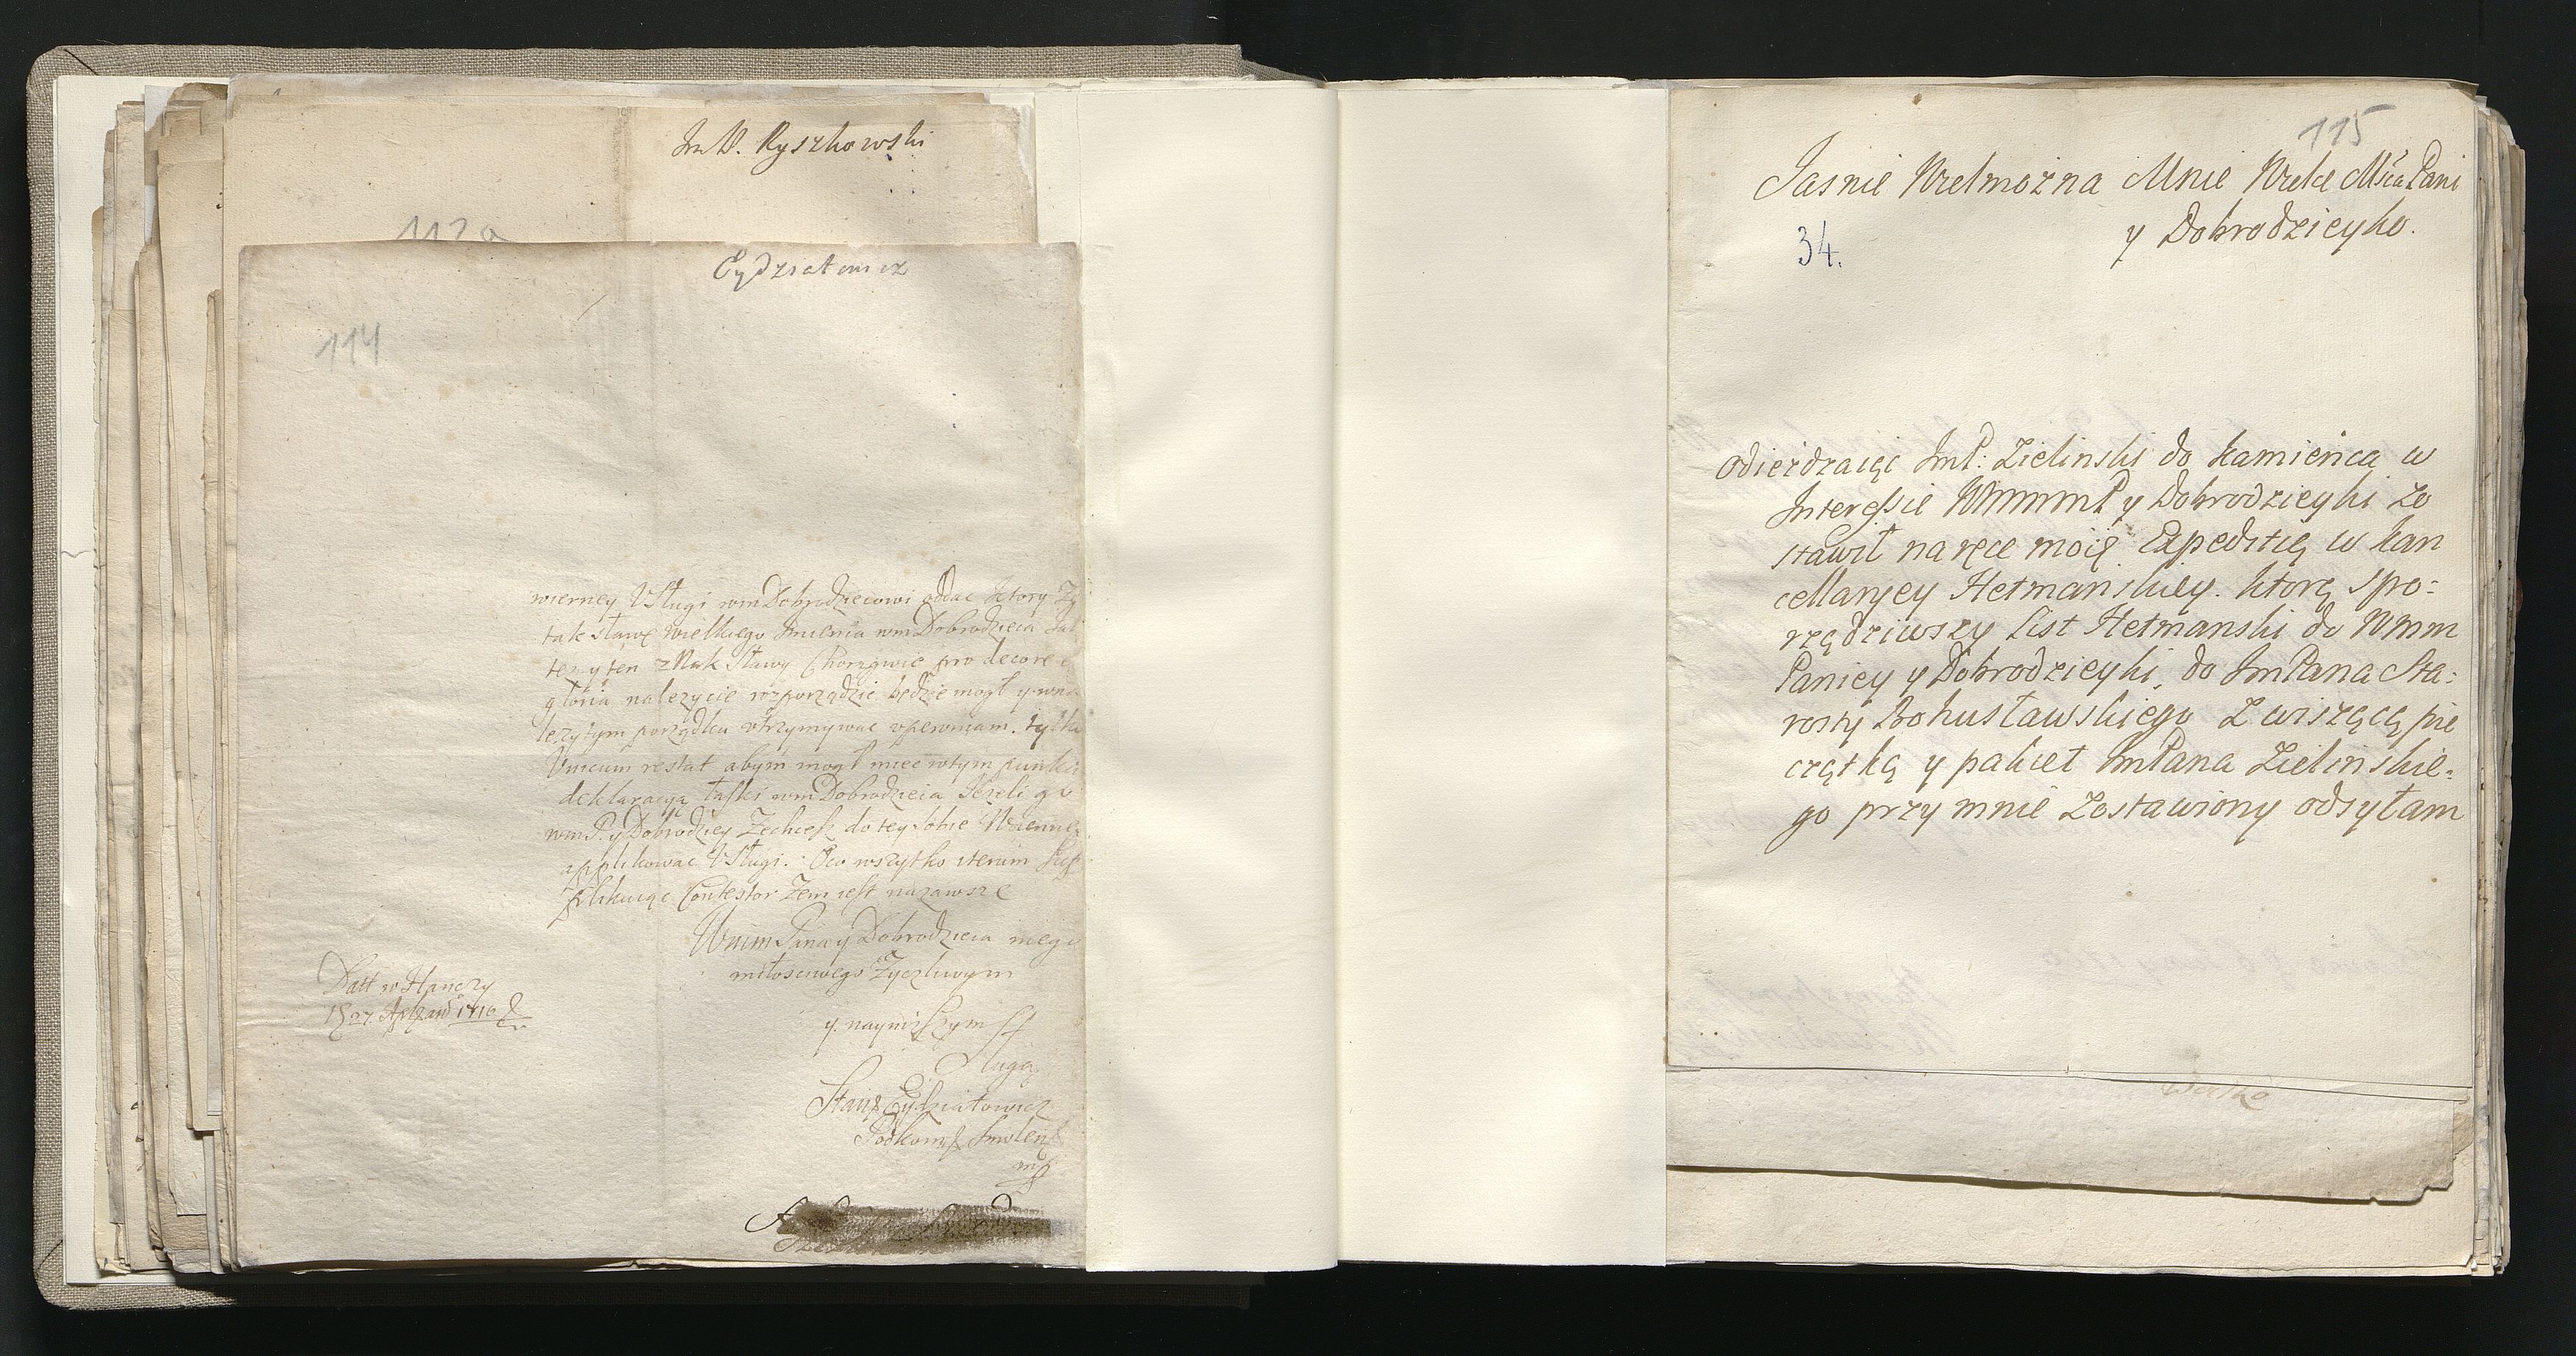 Im P. Ryszkowski
112a
Eydziatowicz
114
wierney Usługi wm Dobrodzieiowi oddac ktory
tak sławę wielkiego Imienia wm Dobrodzieia
tez y ten znak Sławy Chorągwie pro decore
gloria nalezycie rozporządzic będzie mogł y
lezytym porządku utrzymywac upewniam. tylko
Unicum restat abym mogł miec w tym punkcie
deklaracyą łaski wm Dobrodzieia Jezeli go
wm P. y Dobrodziey Zechcesz do tey sobie
applikowac Usługi. Oco wszytko
plikuiąc Contestor Zem iest nazawsze
Wmm Pana y Dobrodzieia mego
miłosciwego Zyczliwym
y. nayniszym
Sługą
Datt w Hanczy
27 Apr 1710
Stanis Eydziatowicz
Podkom Smolen
mp
115
Jasnie Wielmozna Mnie Wielce Mscia Pani
y Dobrodzieyko.
34.
Odiezdzaiąc ImP. Zielinski do Kamienca w
Interessie WmmmP y Dobrodzieyki Zo
stawił na ręce moię Expeditię w kan
cellaryey Hetmanskiey. ktorą spo=
rządziwszy List Hetmanski do Wmm
Paniey y Dobrodzieyki, do ImPana Sta=
rosty Bohusławskiego z wiszącą pie
czątką y pakiet ImPana Zielinskie=
go przy mnie zostawiony odsyłam